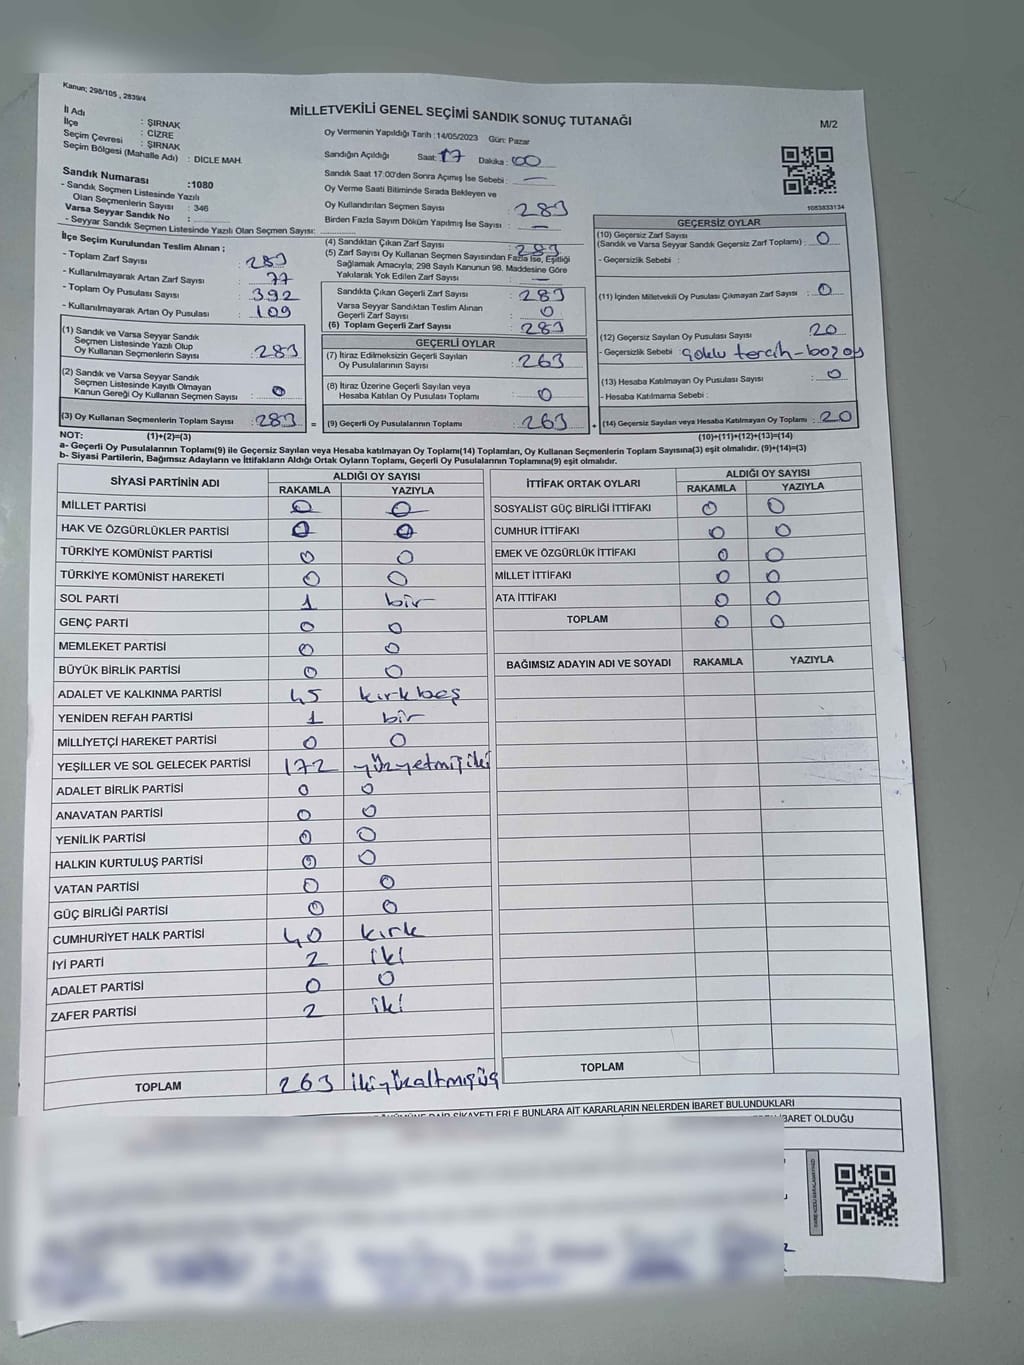 Kanun; 298/105 , 2839/4
MİLLETVEKİLİ GENEL SEÇİMİ SANDIK SONUÇ TUTANAĞI
M/2
İl Adı : ŞIRNAK
İlçe : CİZRE
Seçim Çevresi : ŞIRNAK
Seçim Bölgesi (Mahalle Adı) : DİCLE MAH.
Sandık Numarası :1080
- Sandık Seçmen Listesinde Yazılı
Olan Seçmenlerin Sayısı : 346
Varsa Seyyar Sandık No :
- Seyyar Sandık Seçmen Listesinde Yazılı Olan Seçmen Sayısı:
Oy Vermenin Yapıldığı Tarih :14/05/2023 Gün: Pazar
Sandığın Açıldığı Saat: 17 Dakika : 00
Sandık Saat 17.00'den Sonra Açımış İse Sebebi : —
Oy Verme Saati Bitiminde Sırada Bekleyen ve
Oy Kullandırılan Seçmen Sayısı : 283
Birden Fazla Sayım Döküm Yapılmış İse Sayısı : —
1083833134
İlçe Seçim Kurulundan Teslim Alınan ;
- Toplam Zarf Sayısı : 283
- Kullanılmayarak Artan Zarf Sayısı : 77
- Toplam Oy Pusulası Sayısı : 392
- Kullanılmayarak Artan Oy Pusulası : 109
(1) Sandık ve Varsa Seyyar Sandık
Seçmen Listesinde Yazılı Olup
Oy Kullanan Seçmenlerin Sayısı : 283
(2) Sandık ve Varsa Seyyar Sandık
Seçmen Listesinde Kayıtlı Olmayan
Kanun Gereği Oy Kullanan Seçmen Sayısı : 0
(3) Oy Kullanan Seçmenlerin Toplam Sayısı : 283 =
(4) Sandıktan Çıkan Zarf Sayısı : 283
(5) Zarf Sayısı Oy Kullanan Seçmen Sayısından Fazla İse, Eşitliği
Sağlamak Amacıyla; 298 Sayılı Kanunun 98. Maddesine Göre
Yakılarak Yok Edilen Zarf Sayısı : —
Sandıkta Çıkan Geçerli Zarf Sayısı : 283
Varsa Seyyar Sandıktan Teslim Alınan
Geçerli Zarf Sayısı : 0
(6) Toplam Geçerli Zarf Sayısı : 283
GEÇERLİ OYLAR
(7) İtiraz Edilmeksizin Geçerli Sayılan
Oy Pusulalarının Sayısı : 263
(8) İtiraz Üzerine Geçerli Sayılan veya
Hesaba Katılan Oy Pusulası Toplamı : 0
(9) Geçerli Oy Pusulalarının Toplamı : 263 +
GEÇERSİZ OYLAR
(10) Geçersiz Zarf Sayısı
(Sandık ve Varsa Seyyar Sandık Geçersiz Zarf Toplamı) : 0
- Geçersizlik Sebebi :
(11) İçinden Milletvekili Oy Pusulası Çıkmayan Zarf Sayısı : 0
(12) Geçersiz Sayılan Oy Pusulası Sayısı : 20
- Geçersizlik Sebebi : çoklu tercih-boz oy
(13) Hesaba Katılmayan Oy Pusulası Sayısı : 0
- Hesaba Katılmama Sebebi :
(14) Geçersiz Sayılan veya Hesaba Katılmayan Oy Toplamı : 20
NOT: (1)+(2)=(3) (10)+(11)+(12)+(13)=(14)
a- Geçerli Oy Pusulalarının Toplamı(9) ile Geçersiz Sayılan veya Hesaba katılmayan Oy Toplamı(14) Toplamları, Oy Kullanan Seçmenlerin Toplam Sayısına(3) eşit olmalıdır. (9)+(14)=(3)
b- Siyasi Partilerin, Bağımsız Adayların ve İttifakların Aldığı Ortak Oyların Toplamı, Geçerli Oy Pusulalarının Toplamına(9) eşit olmalıdır.
SİYASİ PARTİNİN ADI ALDIĞI OY SAYISI
RAKAMLA YAZIYLA
MİLLET PARTİSİ 0 0
HAK VE ÖZGÜRLÜKLER PARTİSİ 0 0
TÜRKİYE KOMÜNİST PARTİSİ 0 0
TÜRKİYE KOMÜNİST HAREKETİ 0 0
SOL PARTİ 1 bir
GENÇ PARTİ 0 0
MEMLEKET PARTİSİ 0 0
BÜYÜK BİRLİK PARTİSİ 0 0
ADALET VE KALKINMA PARTİSİ 45 kırkbeş
YENİDEN REFAH PARTİSİ 1 bir
MİLLİYETÇİ HAREKET PARTİSİ 0 0
YEŞİLLER VE SOL GELECEK PARTİSİ 172 yüzyetmişiki
ADALET BİRLİK PARTİSİ 0 0
ANAVATAN PARTİSİ 0 0
YENİLİK PARTİSİ 0 0
HALKIN KURTULUŞ PARTİSİ 0 0
VATAN PARTİSİ 0 0
GÜÇ BİRLİĞİ PARTİSİ 0 0
CUMHURİYET HALK PARTİSİ 40 kırk
İYİ PARTİ 2 iki
ADALET PARTİSİ 0 0
ZAFER PARTİSİ 2 iki
TOPLAM 263 ikiyüzaltmışüç
İTTİFAK ORTAK OYLARI ALDIĞI OY SAYISI
RAKAMLA YAZIYLA
SOSYALİST GÜÇ BİRLİĞİ İTTİFAKI 0 0
CUMHUR İTTİFAKI 0 0
EMEK VE ÖZGÜRLÜK İTTİFAKI 0 0
MİLLET İTTİFAKI 0 0
ATA İTTİFAKI 0 0
TOPLAM 0 0
BAĞIMSIZ ADAYIN ADI VE SOYADI RAKAMLA YAZIYLA
TOPLAM
DAİR ŞİKAYETLERLE BUNLARA AİT KARARLARIN NELERDEN İBARET BULUNDUKLARI
İBARET OLDUĞU